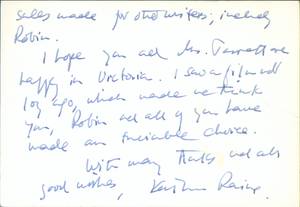 sales made for other writers, including
Robin.
I hope you and Mrs. Tarratt are
happy in Victoria. I saw a film not
long ago, which made me think
you, Robin and all of you have
made an enviable choice.
With many thanks and all
good wishes, Kathleen Raine.